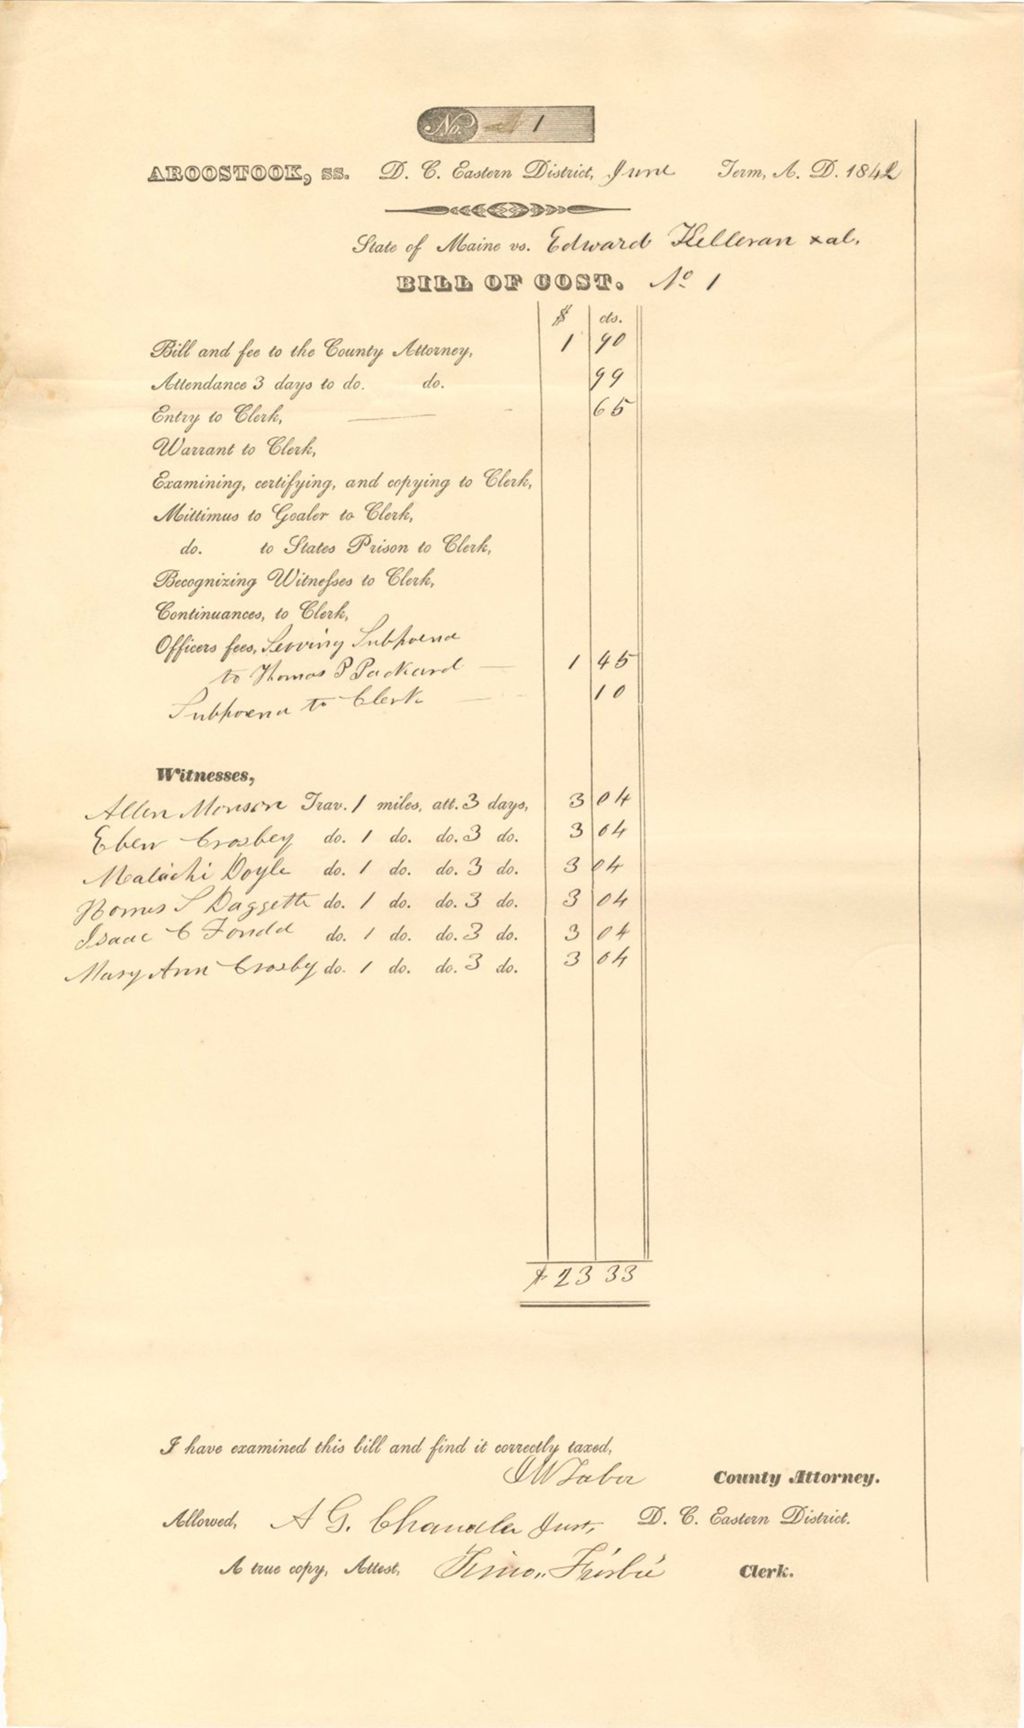 No. 1
AROOSTOOK, ss. D. C. Eastern District, June Term, A. D. 1842
State of Maine vs. Edward Kelleran & al.
BILL OF COST. No 1
$ cts.
Bill and fee to the County Attorney, 1 90
Attendance 3 days to do. do. 99
Entry to Clerk, 65
Warrant to Clerk,
Examining, certifying, and copying to Clerk,
Mittimus to Goaler to Clerk,
do. to States Prison to Clerk,
Recognizing Witnesses to Clerk,
Continuances, to Clerk,
Officers fees, Serving Subpoena
to Thomas P Packard 1 45
Subpoena to Clerk 10
Witnesses,
Allen Monson Trav. 1 miles, att. 3 days, 3 04
Eben Crosbey do. 1 do. do. 3 do. 3 04
Malachi Doyle do. 1 do. do. 3 do. 3 04
S Daggett do. 1 do. do. 3 do. 3 04
Isaac C do. 1 do. do. 3 do. 3 04
Mary Ann Crosby do. 1 do. do. 3 do. 3 04
$ 23 33
I have examined this bill and find it correctly taxed,
Tabor County Attorney.
Allowed, A G. Chandler Just, D. C. Eastern District.
A true copy, Attest, Frisbie Clerk.